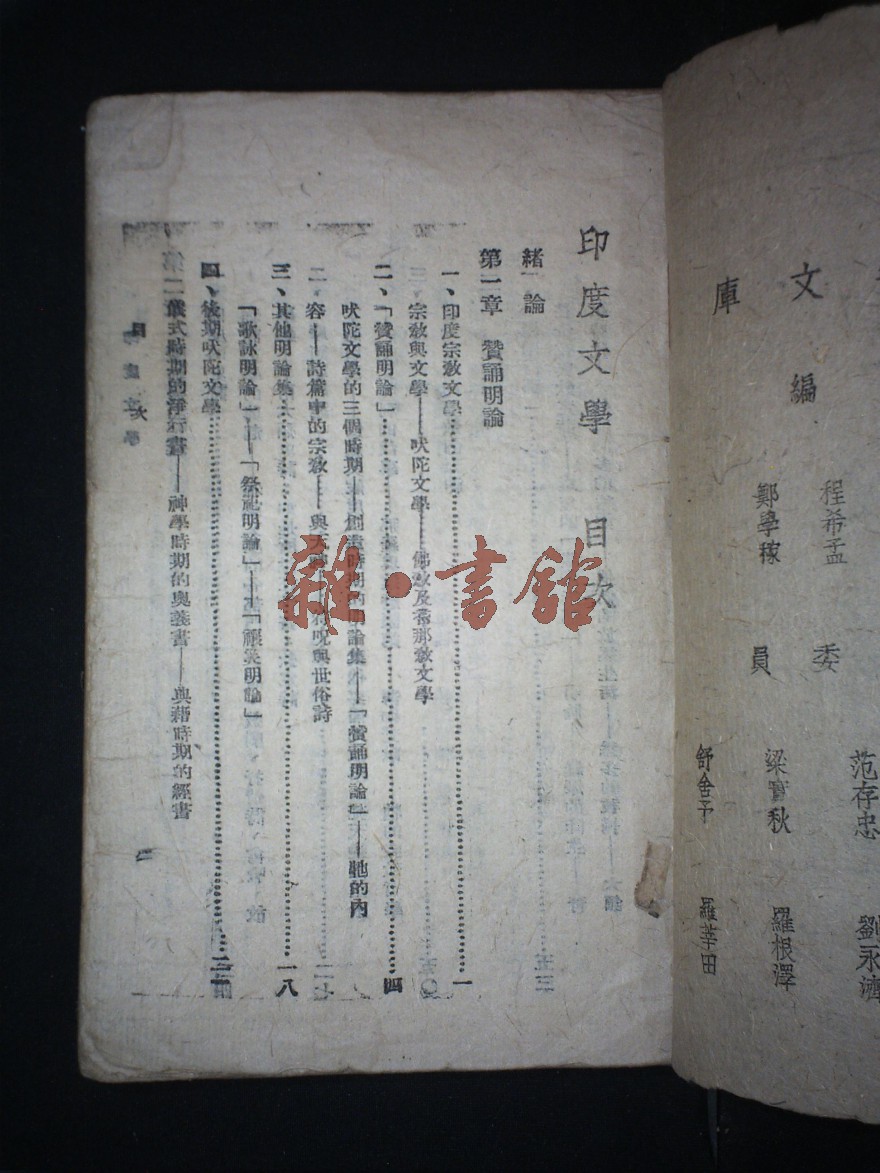 庫
文
編
員
委
程希孟
鄭學稼
范存忠
梁實秋
舒舍予
劉永濟
羅根澤
羅莘田
印度文學 目次
緒論
第一章 贊誦明論
一、印度宗教文學……一
宗教與文學——吠陀文學——佛教及耆那教文學
二、「贊誦明論」……四
吠陀文學的三個時期——創造時期的明論集——「贊誦明論」——牠的內
容——詩篇中的宗教——與世俗詩
三、其他明論集……一八
「歌詠明論」——「祭祀明論」——「禳災明論」
四、後期吠陀文學……二二
儀式時期的淨行書——神學時期的奧義書——典籍時期的經書
目次
雜·書館